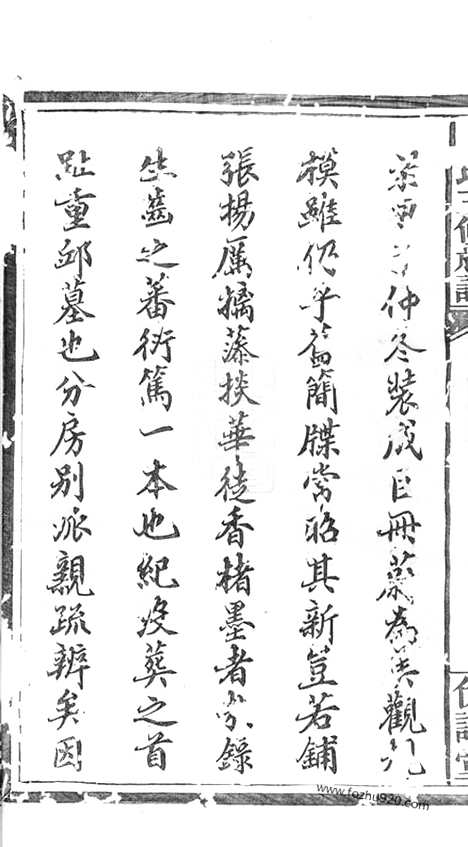 仲冬裝成巨冊蔚為異觀九
模雖仍乎舊簡牒當昭其新豈若鋪
張揚厲摛藻掞華徒香楮墨者尒錄
生齒之蕃衍篤一本也紀歿葬之首
趾重邱墓也分房別派親疏辨矣因
www.fozhu920.com